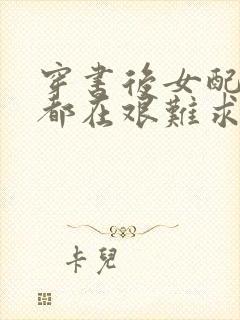 穿書後女配
都在艱難求
卡兒